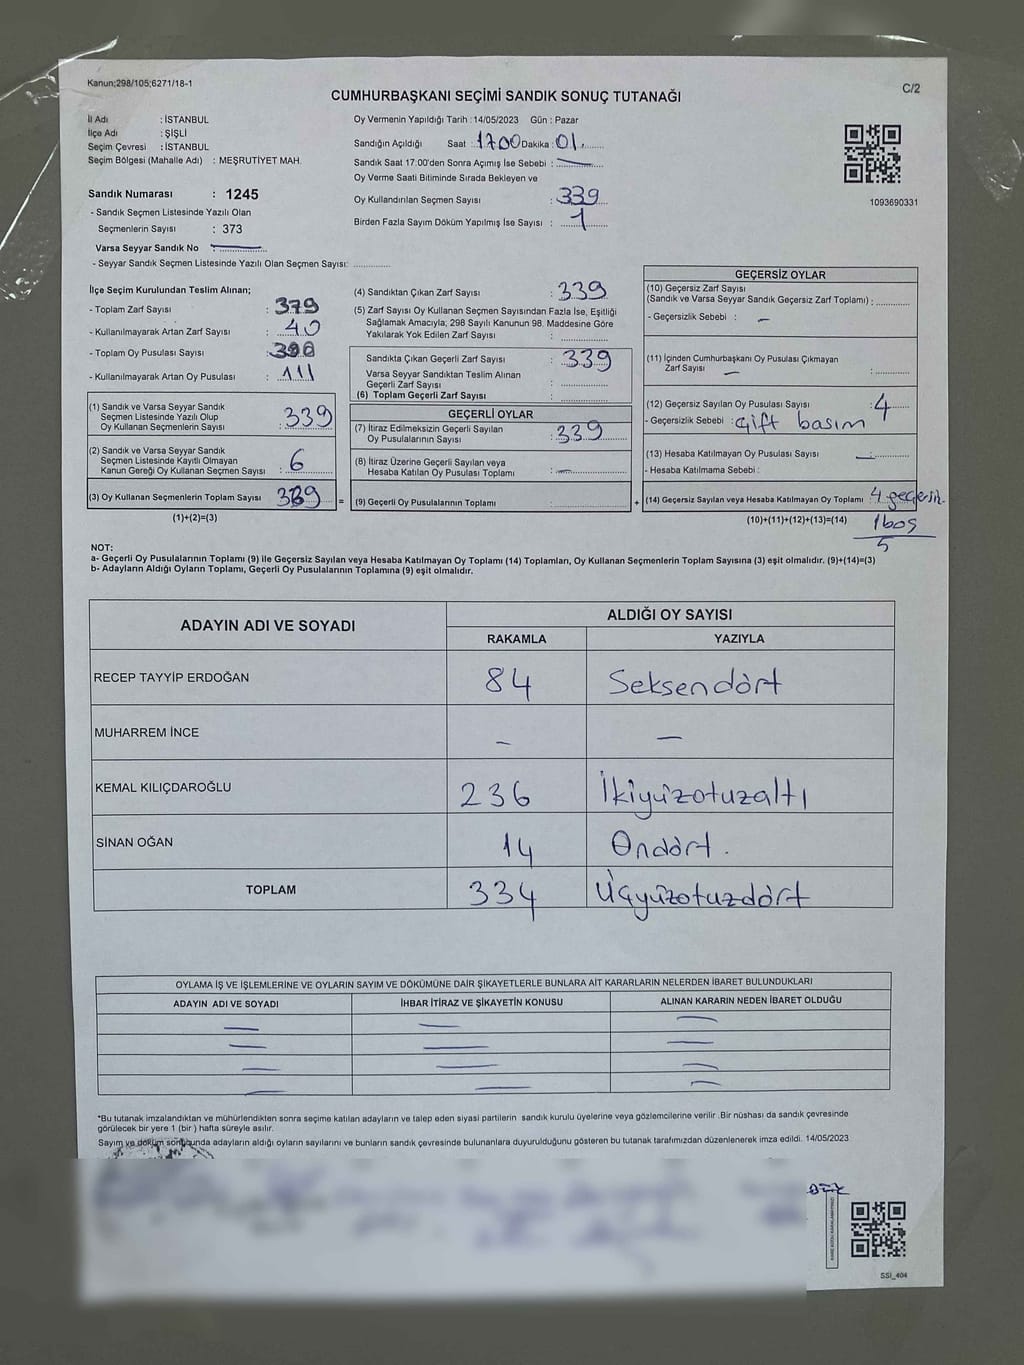 Kanun;298/105;6271/18-1
C/2
CUMHURBAŞKANI SEÇİMİ SANDIK SONUÇ TUTANAĞI
İl Adı : İSTANBUL
İlçe Adı : ŞİŞLİ
Seçim Çevresi : İSTANBUL
Seçim Bölgesi (Mahalle Adı) : MEŞRUTİYET MAH.
Sandık Numarası : 1245
- Sandık Seçmen Listesinde Yazılı Olan
Seçmenlerin Sayısı : 373
Varsa Seyyar Sandık No :
- Seyyar Sandık Seçmen Listesinde Yazılı Olan Seçmen Sayısı:
Oy Vermenin Yapıldığı Tarih :14/05/2023 Gün : Pazar
Sandığın Açıldığı Saat : 1700 Dakika : 01
Sandık Saat 17:00'den Sonra Açımış İse Sebebi : —
Oy Verme Saati Bitiminde Sırada Bekleyen ve
Oy Kullandırılan Seçmen Sayısı : 339
Birden Fazla Sayım Döküm Yapılmış İse Sayısı : 1
1093690331
İlçe Seçim Kurulundan Teslim Alınan;
- Toplam Zarf Sayısı : 379
- Kullanılmayarak Artan Zarf Sayısı : 40
- Toplam Oy Pusulası Sayısı :
- Kullanılmayarak Artan Oy Pusulası : 111
(1) Sandık ve Varsa Seyyar Sandık
Seçmen Listesinde Yazılı Olup
Oy Kullanan Seçmenlerin Sayısı : 339
(2) Sandık ve Varsa Seyyar Sandık
Seçmen Listesinde Kayıtlı Olmayan
Kanun Gereği Oy Kullanan Seçmen Sayısı : 6
(3) Oy Kullanan Seçmenlerin Toplam Sayısı 339
(1)+(2)=(3)
=
(4) Sandıktan Çıkan Zarf Sayısı : 339
(5) Zarf Sayısı Oy Kullanan Seçmen Sayısından Fazla İse, Eşitliği
Sağlamak Amacıyla; 298 Sayılı Kanunun 98. Maddesine Göre
Yakılarak Yok Edilen Zarf Sayısı :
Sandıkta Çıkan Geçerli Zarf Sayısı : 339
Varsa Seyyar Sandıktan Teslim Alınan
Geçerli Zarf Sayısı :
(6) Toplam Geçerli Zarf Sayısı :
GEÇERLİ OYLAR
(7) İtiraz Edilmeksizin Geçerli Sayılan
Oy Pusulalarının Sayısı : 339
(8) İtiraz Üzerine Geçerli Sayılan veya
Hesaba Katılan Oy Pusulası Toplamı : —
(9) Geçerli Oy Pusulalarının Toplamı :
+
GEÇERSİZ OYLAR
(10) Geçersiz Zarf Sayısı
(Sandık ve Varsa Seyyar Sandık Geçersiz Zarf Toplamı) :
- Geçersizlik Sebebi : —
(11) İçinden Cumhurbaşkanı Oy Pusulası Çıkmayan
Zarf Sayısı — :
(12) Geçersiz Sayılan Oy Pusulası Sayısı : 4
- Geçersizlik Sebebi : çift basım
(13) Hesaba Katılmayan Oy Pusulası Sayısı : —
- Hesaba Katılmama Sebebi :
(14) Geçersiz Sayılan veya Hesaba Katılmayan Oy Toplamı 4 geçersiz.
(10)+(11)+(12)+(13)=(14) 1boş
5
NOT:
a- Geçerli Oy Pusulalarının Toplamı (9) ile Geçersiz Sayılan veya Hesaba Katılmayan Oy Toplamı (14) Toplamları, Oy Kullanan Seçmenlerin Toplam Sayısına (3) eşit olmalıdır. (9)+(14)=(3)
b- Adayların Aldığı Oyların Toplamı, Geçerli Oy Pusulalarının Toplamına (9) eşit olmalıdır.
ADAYIN ADI VE SOYADI
ALDIĞI OY SAYISI
RAKAMLA YAZIYLA
RECEP TAYYİP ERDOĞAN 84 Seksendört
MUHARREM İNCE — —
KEMAL KILIÇDAROĞLU 236 İkiyüzotuzaltı
SİNAN OĞAN 14 Ondört.
TOPLAM 334 Üçyüzotuzdört
OYLAMA İŞ VE İŞLEMLERİNE VE OYLARIN SAYIM VE DÖKÜMÜNE DAİR ŞİKAYETLERLE BUNLARA AİT KARARLARIN NELERDEN İBARET BULUNDUKLARI
ADAYIN ADI VE SOYADI İHBAR İTİRAZ VE ŞİKAYETİN KONUSU ALINAN KARARIN NEDEN İBARET OLDUĞU
— — —
— — —
— — —
— — —
*Bu tutanak imzalandıktan ve mühürlendikten sonra seçime katılan adayların ve talep eden siyasi partilerin sandık kurulu üyelerine veya gözlemcilerine verilir .Bir nüshası da sandık çevresinde
görülecek bir yere 1 (bir ) hafta süreyle asılır.
Sayım ve döküm sonucunda adayların aldığı oyların sayılarını ve bunların sandık çevresinde bulunanlara duyurulduğunu gösteren bu tutanak tarafımızdan düzenlenerek imza edildi. 14/05/2023
SSİ_404